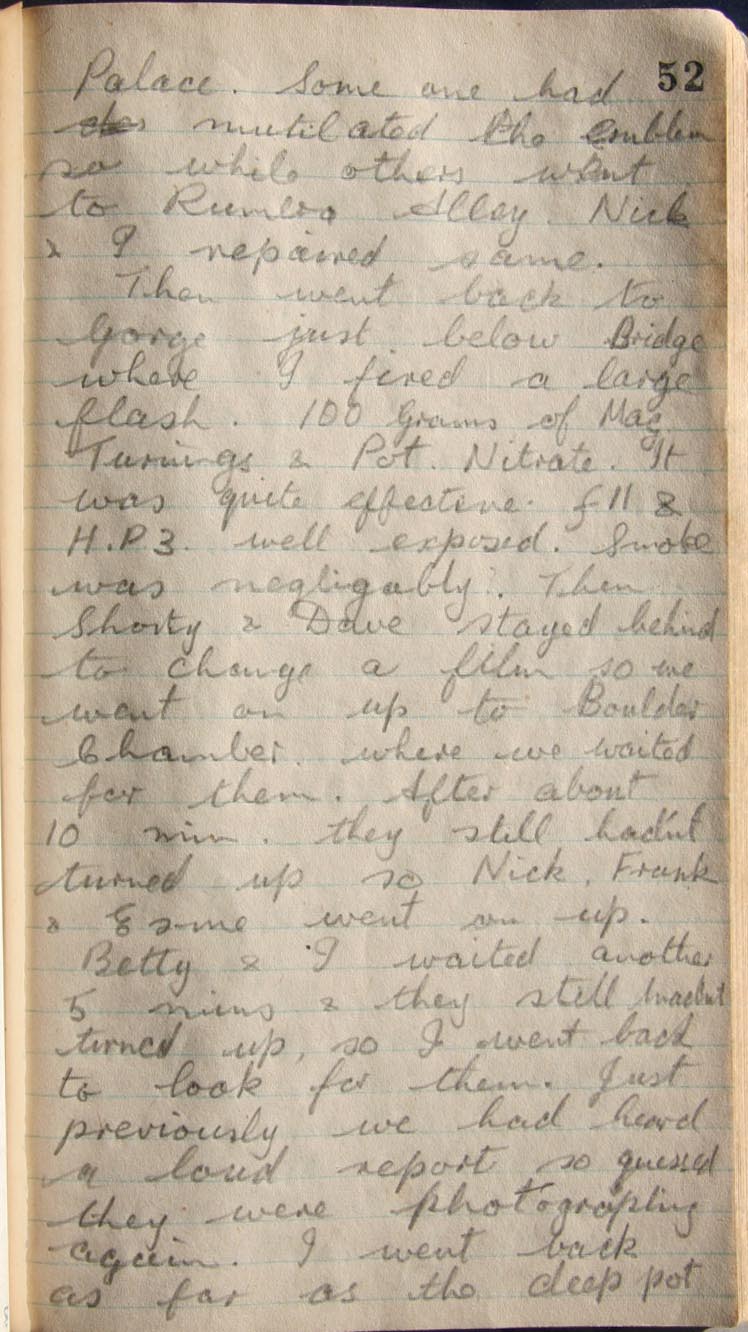 52
Palace. Some one had
mutilated the emblem
so while others went
to Rumero Alley. Nick
& I repaired same.
Then went back to
Gorge just below Bridge
where I fired a large
flash. 100 Grams of Mag.
Turnings & Pot. Nitrate. It
was quite effective. f 11 &
H.P3. well exposed. Smoke
was negligably. Then
Shorty & Dave stayed behind
to change a film so we
went on up to Boulder
Chamber. where we waited
for them. After about
10 min. they still hadn't
turned up so Nick, Frank
& Esme went on up.
Betty & I waited another
5 mins & they still hadn't
turned up, so I went back
to look for them. Just
previously we had heard
a loud report so guessed
they were photographing
again. I went back
as far as the deep pot